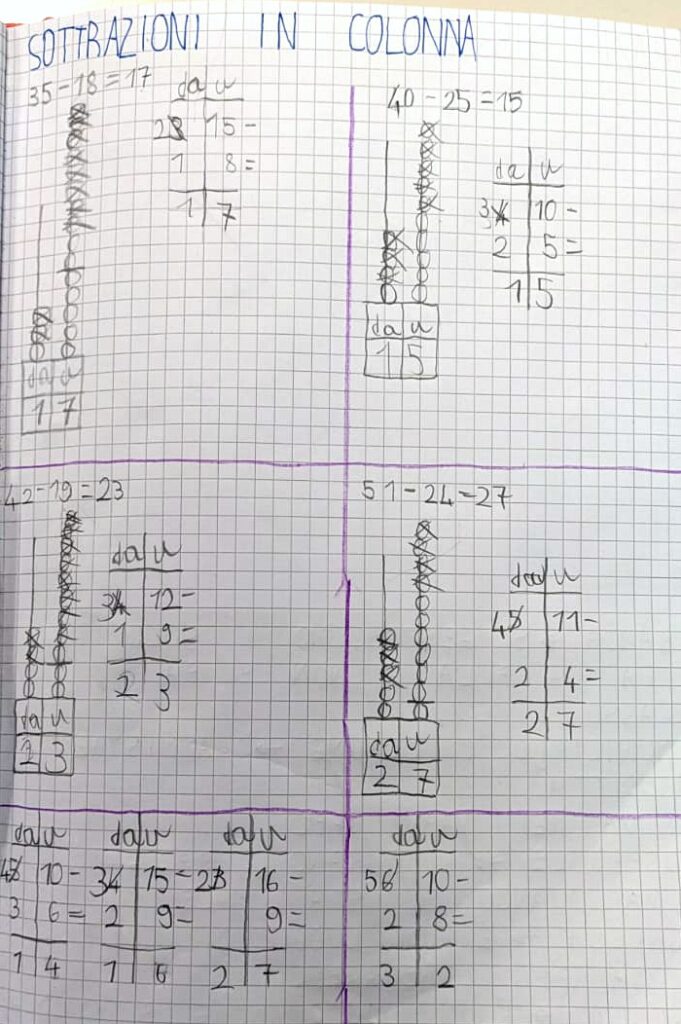 SOTTRAZIONI IN COLONNA
35-18=17
da u
2 3 15-
1 8=
1 7
da u
1 7
40-25=15
da u
3 4 10-
2 5=
1 5
da u
1 5
42-19=23
da u
3 4 12-
1 9=
2 3
da u
2 3
51-24=27
da u
4 5 11-
2 4=
2 7
da u
2 7
da u
4 5 10-
3 6=
1 4
da u
3 4 15-
2 9=
1 6
da u
2 3 16-
9=
2 7
da u
5 6 10-
2 8=
3 2